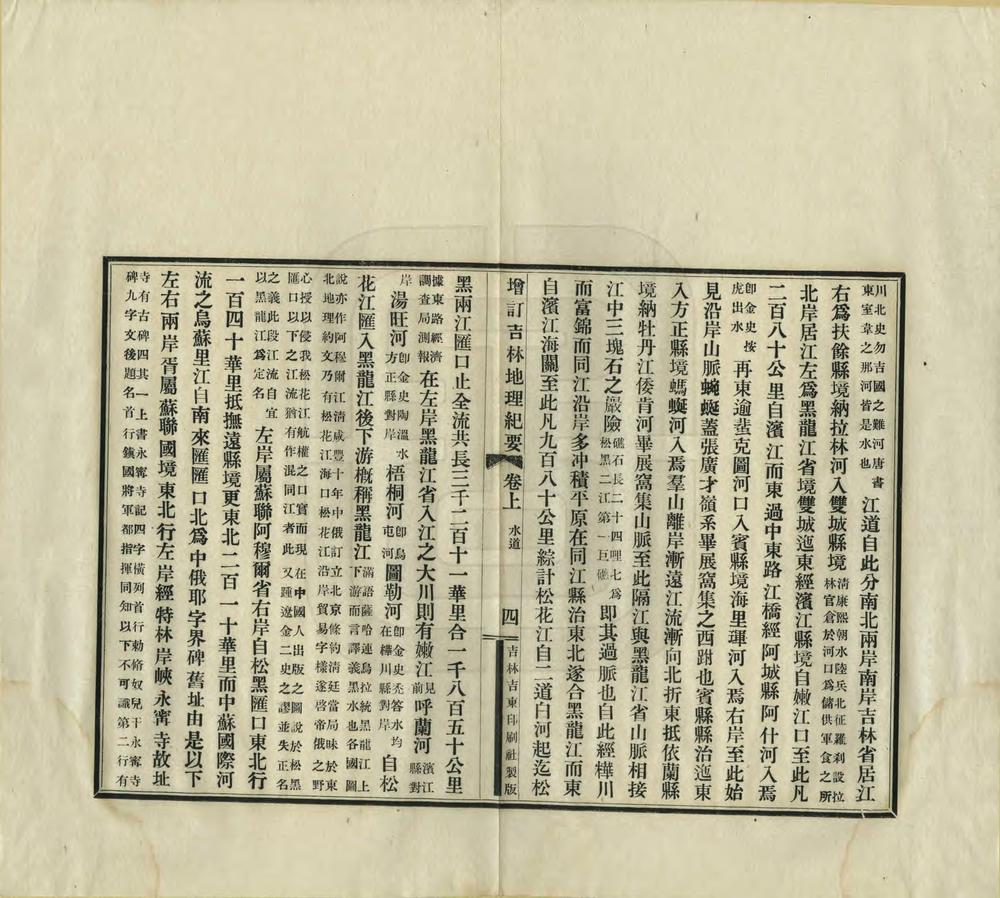 川北史勿吉國之難河唐書
東室韋之那河皆是水也
江道自此分南北兩岸南岸吉林省居江
右爲扶餘縣境納拉林河入雙城縣境
清康熙朝水陸兵北征羅刹設拉
林官倉於河口爲儲供軍食之所
北岸居江左爲黑龍江省境雙城迤東經濱江縣境自嫩江口至此凡
二百八十公里自濱江而東過中東路江橋經阿城縣阿什河入焉
卽金史按
虎出水
再東逾蜚克圖河口入賓縣境海里渾河入焉右岸至此始
見沿岸山脈蜿蜒蓋張廣才嶺系畢展窩集之西跗也賓縣縣治迤東
入方正縣境螞蜒河入焉羣山離岸漸遠江流漸向北折東抵依蘭縣
境納牡丹江倭肯河畢展窩集山脈至此隔江與黑龍江省山脈相接
江中三塊石之嚴險
礁石長二十四哩七爲
松黑二江第一巨礁
卽其過脈也自此經樺川
而富錦而同江沿岸多冲積平原在同江縣治東北遂合黑龍江而東
自濱江海關至此凡九百八十公里綜計松花江自二道白河起迄松
增訂吉林地理紀要
卷上
水道
四
吉林吉東印刷社製版
黑兩江匯口止全流共長三千二百十一華里合一千八百五十公里
據東路經濟
調查局測報
在左岸黑龍江省入江之大川則有嫩江
見前
呼蘭河
濱江縣對
岸
湯旺河
卽金史陶溫水
方正縣對岸
梧桐河
卽烏
屯河
圖勒河
卽金史禿答水
在樺川縣對岸
均自松
花江匯入黑龍江後下游槪稱黑龍江
滿語薩哈連烏拉統黑龍江上
下游而言譯義黑水也各國圖
說亦作阿穆爾江清咸豐十年中俄訂立北京條約清廷當局昧於東
北地理約文乃有松花江海口松花江沿岸貿易字樣遂啓帝俄之野
心授以侵我松花江航權之口實而現在中國人出版之圖說於松黑
匯口以下之江流猶有作混同江者此又踵遼金二史之謬並失正名
之義此段江流自宜
以黑龍江爲定名
左岸屬蘇聯阿穆爾省右岸自松黑匯口東北行
一百四十華里抵撫遠縣境更東北二百一十華里而中蘇國際河
流之烏蘇里江自南來匯匯口北爲中俄耶字界碑舊址由是以下
左右兩岸胥屬蘇聯國境東北行左岸經特林岸峽永寗寺故址
寺有古碑四其一上書永寗寺記四字橫列首行勅脩奴兒干永寗寺
碑九字文後題名首行鎮國將軍都指揮同知以下不可識第二行有